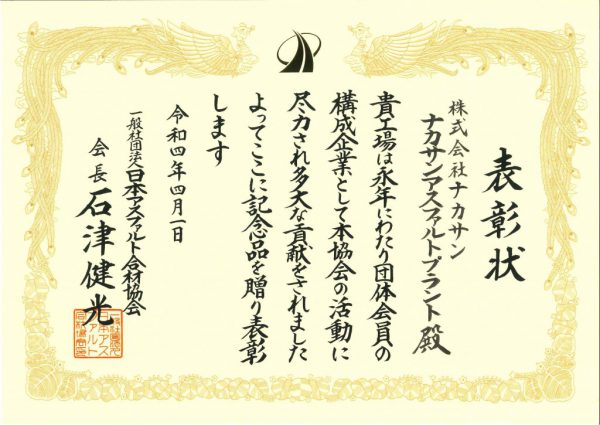 表彰状
株式会社ナカサン
ナカサンアスファルトプラント殿
貴工場は永年にわたり団体会員の
構成企業として本協会の活動に
尽力され多大な貢献をされました
よってここに記念品を贈り表彰
します
令和四年四月一日
一般社団法人日本アスファルト合材協会
会長 石津健光